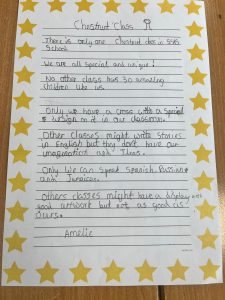 Chestnut Class
There is only one Chestnut class in
School.
We are all special and unique!
No other class has 30 amazing
children like us.
Only we have a cross with a special
design on it in our classroom.
Other classes might write Stories
in English but they don't have our
imagination and Ideas.
Only We can speak Spanish, Russian
and Jamaican.
Others classes might have a display with
good artwork but not as good as
Ours.
Amelie